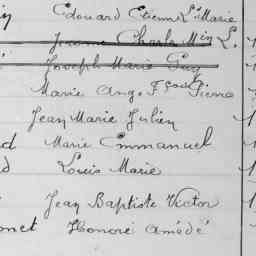 Edouard Etienne Ls Marie
Jerome Charles Min L.
Joseph Marie Guy
Marie Ang. Fçois Pierre
Jean Marie Julien
d Marie Emmanuel
d Louis Marie
Jean Baptiste Victor
onet Honoré Amédé